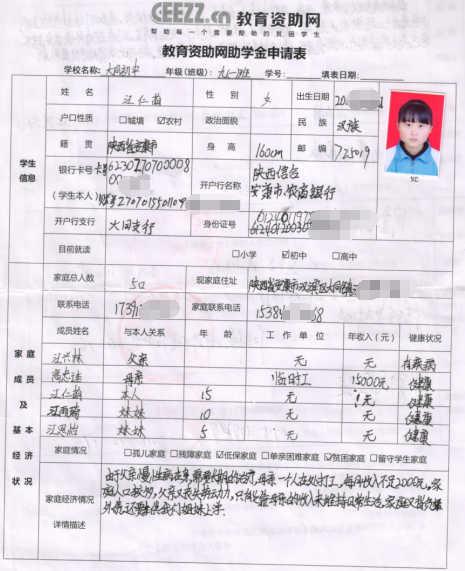 CEEZZ.cn 教育资助网
帮助每一个需要帮助的贫困学生
教育资助网助学金申请表
学校名称: 大同初中 年级(班级): 九一班 学号: 填表日期:
学生信息
姓名 汪仁萌 性别 女 出生日期 20
户口性质 □城填 ☑农村 政治面貌 民族 汉族
籍贯 陕西省安康市 身高 160cm 邮编 725019
银行卡号 (学生本人) 开户行名称 陕西信合 安康市农商银行
开户行支行 大同支行 身份证号
目前就读 □小学 ☑初中 □高中
家庭成员及基本经济状况
家庭总人数 5口 现家庭住址 陕西省安康市汉滨区大同镇
联系电话 173 家庭联系电话 15384 58
成员姓名 与本人关系 年龄 工作单位 年收入(元) 健康状况
汪兴林 父亲 无 无 有疾病
母亲 临时工 15000元 健康
汪仁萌 本人 15 无 无 健康
妹妹 10 无 无 健康
妹妹 5 无 无 健康
家庭情况 □孤儿家庭 □残障家庭 ☑低保家庭 □单亲困难家庭 ☑贫困家庭 □留守学生家庭
家庭经济情况详情描述
由于父亲慢性病在身,需要长期的治疗,母亲一个人在外打工,每月收入不足2000元,家
庭人口较多,父亲又丧失劳动力,只能靠母亲的收入来维持日常生活,家庭又
外债,还要供我们姐妹上学.